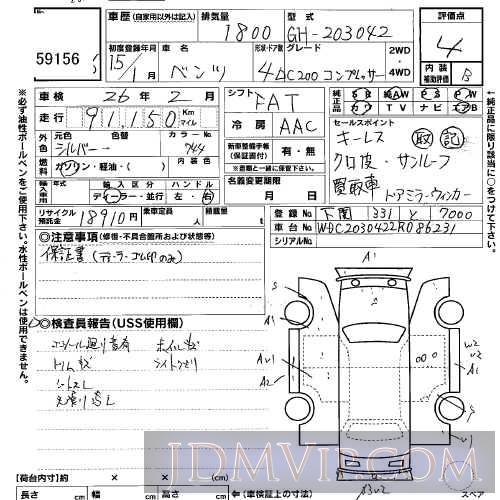 車歴 (自家用以外は記入)
排気量
1800
型式
GH-203042
評価点
4
59156
初度登録年月
15/1月
車名
ベンツ
形状・ドア数
グレード
4D C200 コンプレッサー
2WD
・
4WD
内装
補助評価
B
車検
26年2月
シフト
FAT
純正品
SR AW PS PW
カワ TV ナビ エアB
走行
91,150
Km
マイル
冷房
AAC
セールスポイント
キーレス 取 記
クロ皮・サンルーフ
買取車
ドアミラーウィンカー
外色
元色
色替
カラーNo
シルバー
744
燃料
ガソリン・軽油・( )
内装色
新車整備手帳
(保証書付)
有・無
※書類と一緒に保管下さい。
輸入車使用
輸入区分
ハンドル
ディーラー・並行
左・右
名義変更期限
月 日
リサイクル
預託金
18910円
乗車定員
人
積載量
t
登録No
下関 331 と 7000
車台No
WDC2030422R086231
シリアルNo
◎注意事項 (修復・不具合箇所および状態等)
保証書(ディーラーゴム印のみ)
◎検査員報告(USS使用欄)
コンソール廻り蓄有 ホイルキズ
トリムキズ ライトクモリ
シートスレ
※必ず油性ボールペンをご使用下さい。水性ボールペンは使用できません。
↑純正品に限り該当に○をつけて下さい。
A1
A1
AU1
A2
W2
U2
【荷台内寸】約 × × 【約】
長さ
cm
幅
cm
高さ
cm
←(車検証上の寸法)
スペア
JDMVIP.COM - JDMVIP.COM - JDMVIP.COM